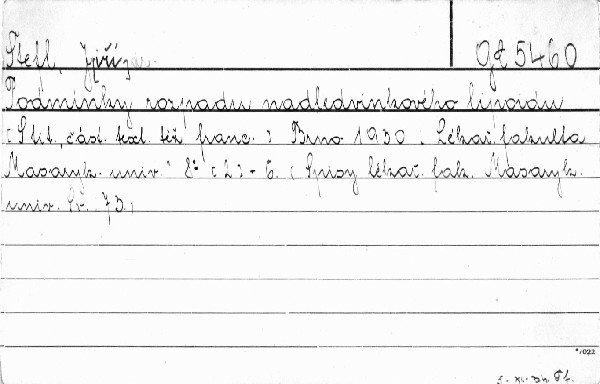 Štefl, Jiří Gt 5460
Podmínky rozpadu nadledvinkového lipoidu
(Stit. část. text. též franc.) Brno 1930. Lékař. fakulta
Masaryk. univ. 8° (2) - 6. (Spisy lékař. fak. Masaryk.
univ. Sv. 73.)
*/022